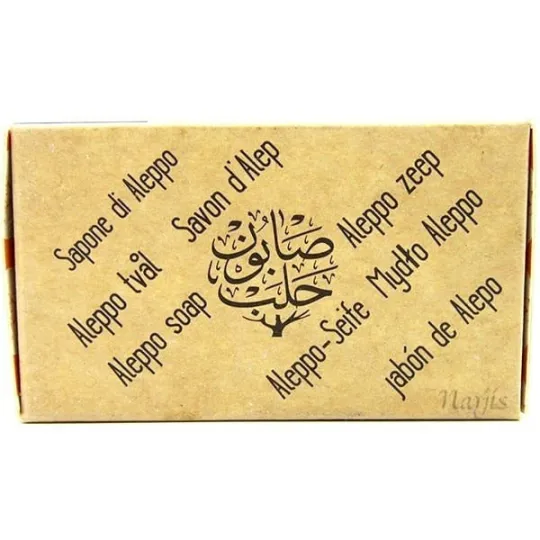 Sapone di Aleppo
Savon d'Alep
Aleppo zeep
Aleppo tvål
صابون
حلب
Mydło Aleppo
Aleppo soap
Aleppo-Seife
jabón de Alepo
Narjis